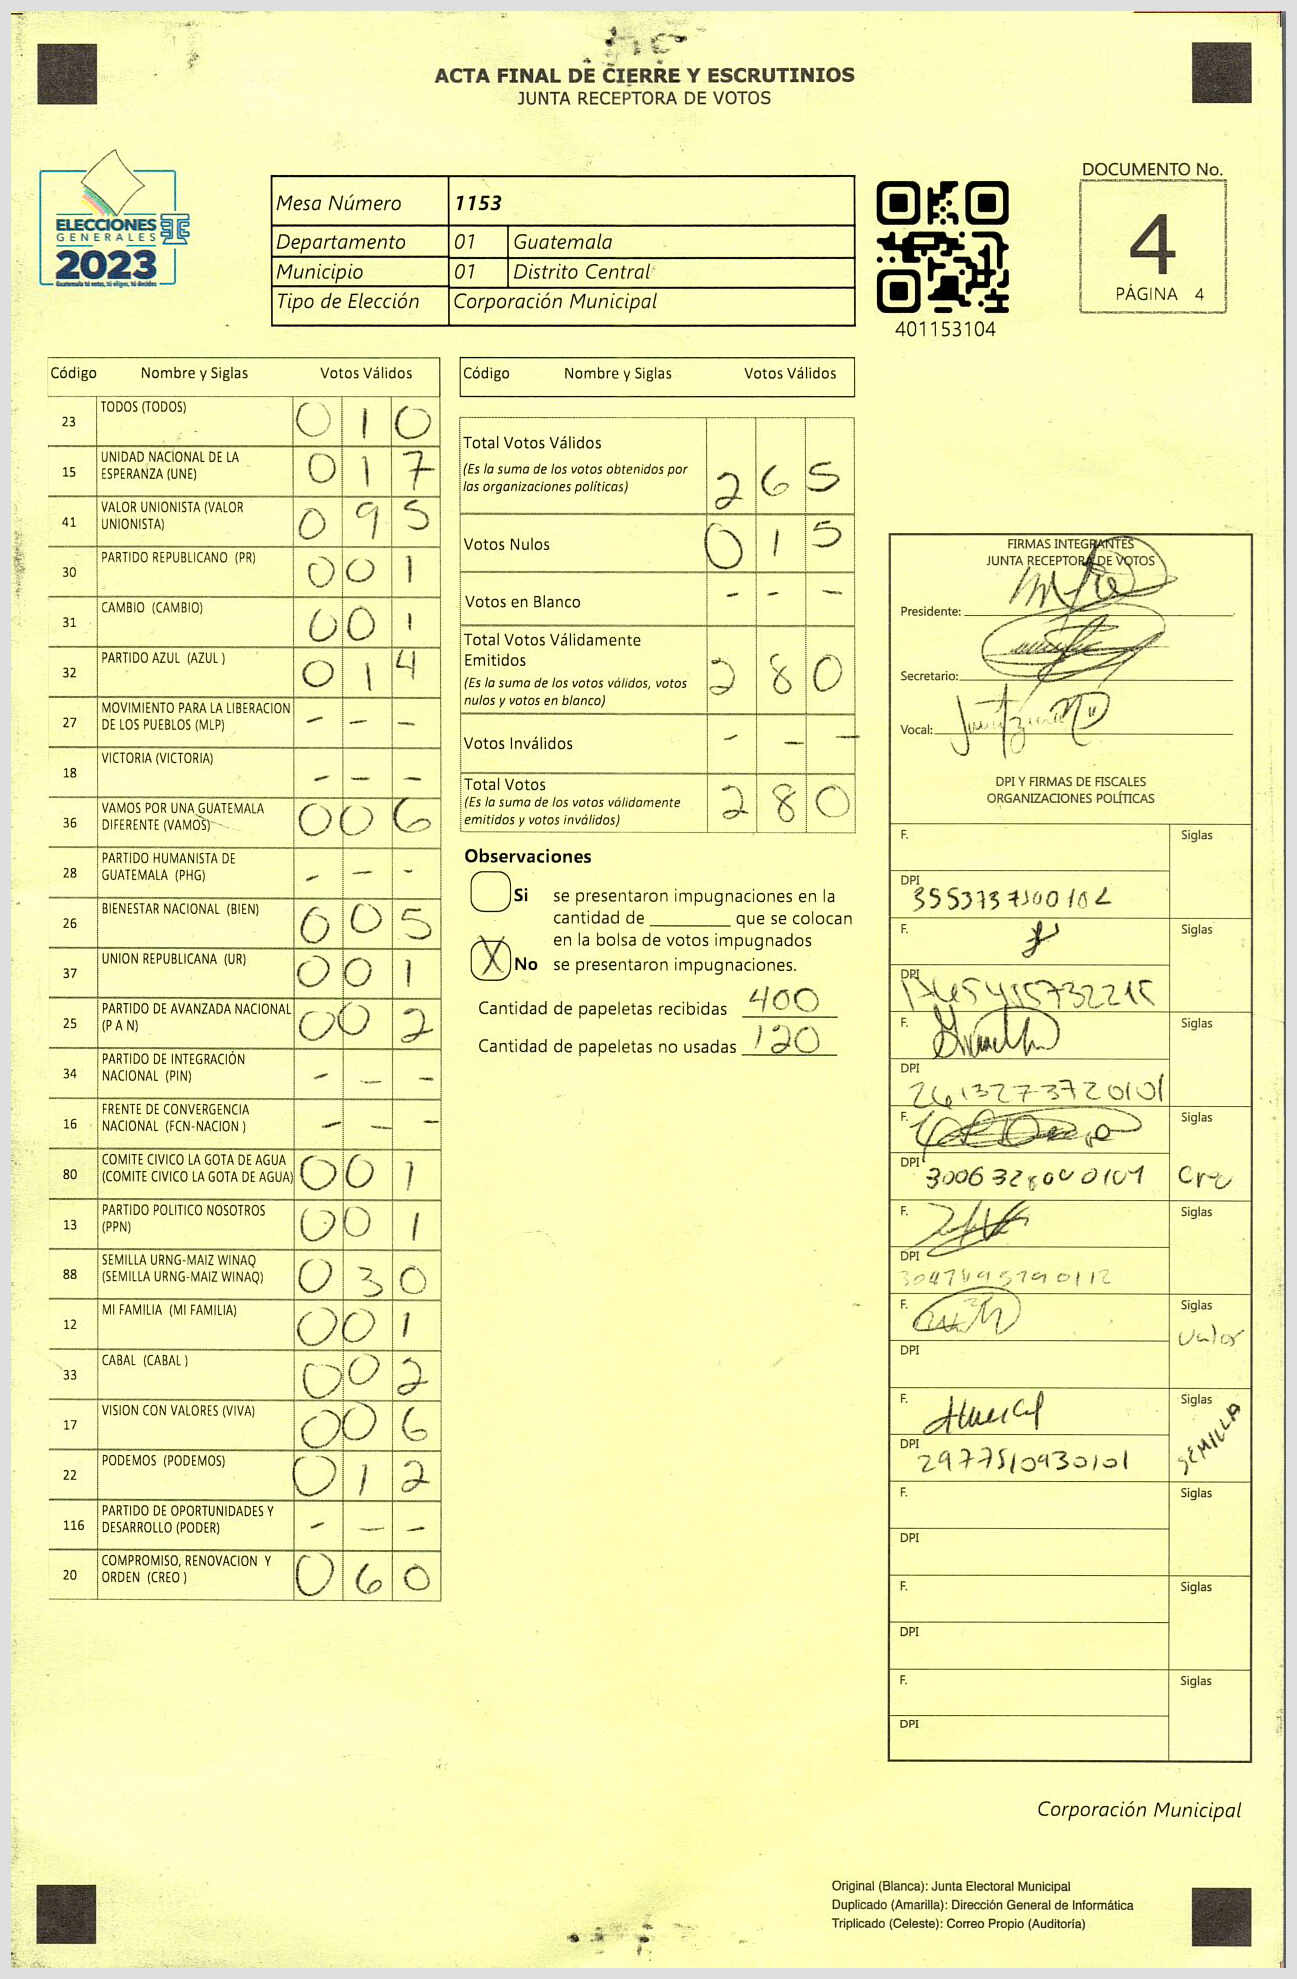 ACTA FINAL DE CIERRE Y ESCRUTINIOS
JUNTA RECEPTORA DE VOTOS
ELECCIONES
GENERALES
2023
Guatemala tú votas, tú eliges, tú decides
Mesa Número 1153
Departamento 01 Guatemala
Municipio 01 Distrito Central
Tipo de Elección Corporación Municipal
401153104
DOCUMENTO No.
4
PÁGINA 4
Código Nombre y Siglas Votos Válidos
23 TODOS (TODOS) 0 1 0
15 UNIDAD NACIONAL DE LA
ESPERANZA (UNE) 0 1 7
41 VALOR UNIONISTA (VALOR
UNIONISTA) 0 9 5
30 PARTIDO REPUBLICANO (PR) 0 0 1
31 CAMBIO (CAMBIO) 0 0 1
32 PARTIDO AZUL (AZUL ) 0 1 4
27 MOVIMIENTO PARA LA LIBERACION
DE LOS PUEBLOS (MLP) - - -
18 VICTORIA (VICTORIA) - - -
36 VAMOS POR UNA GUATEMALA
DIFERENTE (VAMOS) 0 0 6
28 PARTIDO HUMANISTA DE
GUATEMALA (PHG) - - -
26 BIENESTAR NACIONAL (BIEN) 0 0 5
37 UNION REPUBLICANA (UR) 0 0 1
25 PARTIDO DE AVANZADA NACIONAL
(P A N) 0 0 2
34 PARTIDO DE INTEGRACIÓN
NACIONAL (PIN) - - -
16 FRENTE DE CONVERGENCIA
NACIONAL (FCN-NACION ) - - -
80 COMITE CIVICO LA GOTA DE AGUA
(COMITE CIVICO LA GOTA DE AGUA) 0 0 1
13 PARTIDO POLITICO NOSOTROS
(PPN) 0 0 1
88 SEMILLA URNG-MAIZ WINAQ
(SEMILLA URNG-MAIZ WINAQ) 0 3 0
12 MI FAMILIA (MI FAMILIA) 0 0 1
33 CABAL (CABAL ) 0 0 2
17 VISION CON VALORES (VIVA) 0 0 6
22 PODEMOS (PODEMOS) 0 1 2
116 PARTIDO DE OPORTUNIDADES Y
DESARROLLO (PODER) - - -
20 COMPROMISO, RENOVACION Y
ORDEN (CREO ) 0 6 0
Código Nombre y Siglas Votos Válidos
Total Votos Válidos
(Es la suma de los votos obtenidos por
las organizaciones políticas) 2 6 5
Votos Nulos 0 1 5
Votos en Blanco - - -
Total Votos Válidamente
Emitidos
(Es la suma de los votos válidos, votos
nulos y votos en blanco) 2 8 0
Votos Inválidos - - -
Total Votos
(Es la suma de los votos válidamente
emitidos y votos inválidos) 2 8 0
Observaciones
Si se presentaron impugnaciones en la
cantidad de ________ que se colocan
en la bolsa de votos impugnados
X No se presentaron impugnaciones.
Cantidad de papeletas recibidas 400
Cantidad de papeletas no usadas 120
FIRMAS INTEGRANTES
JUNTA RECEPTORA DE VOTOS
Presidente:
Secretario:
Vocal:
DPI Y FIRMAS DE FISCALES
ORGANIZACIONES POLÍTICAS
F. Siglas
DPI
F. Siglas
DPI
F. Siglas
DPI 2613273720101
F. Siglas
DPI
F. Siglas
DPI
F. Siglas
Valor
DPI
F. Siglas
SEMILLA
DPI 2977510930101
F. Siglas
DPI
F. Siglas
DPI
F. Siglas
DPI
Corporación Municipal
Original (Blanca): Junta Electoral Municipal
Duplicado (Amarilla): Dirección General de Informática
Triplicado (Celeste): Correo Propio (Auditoría)